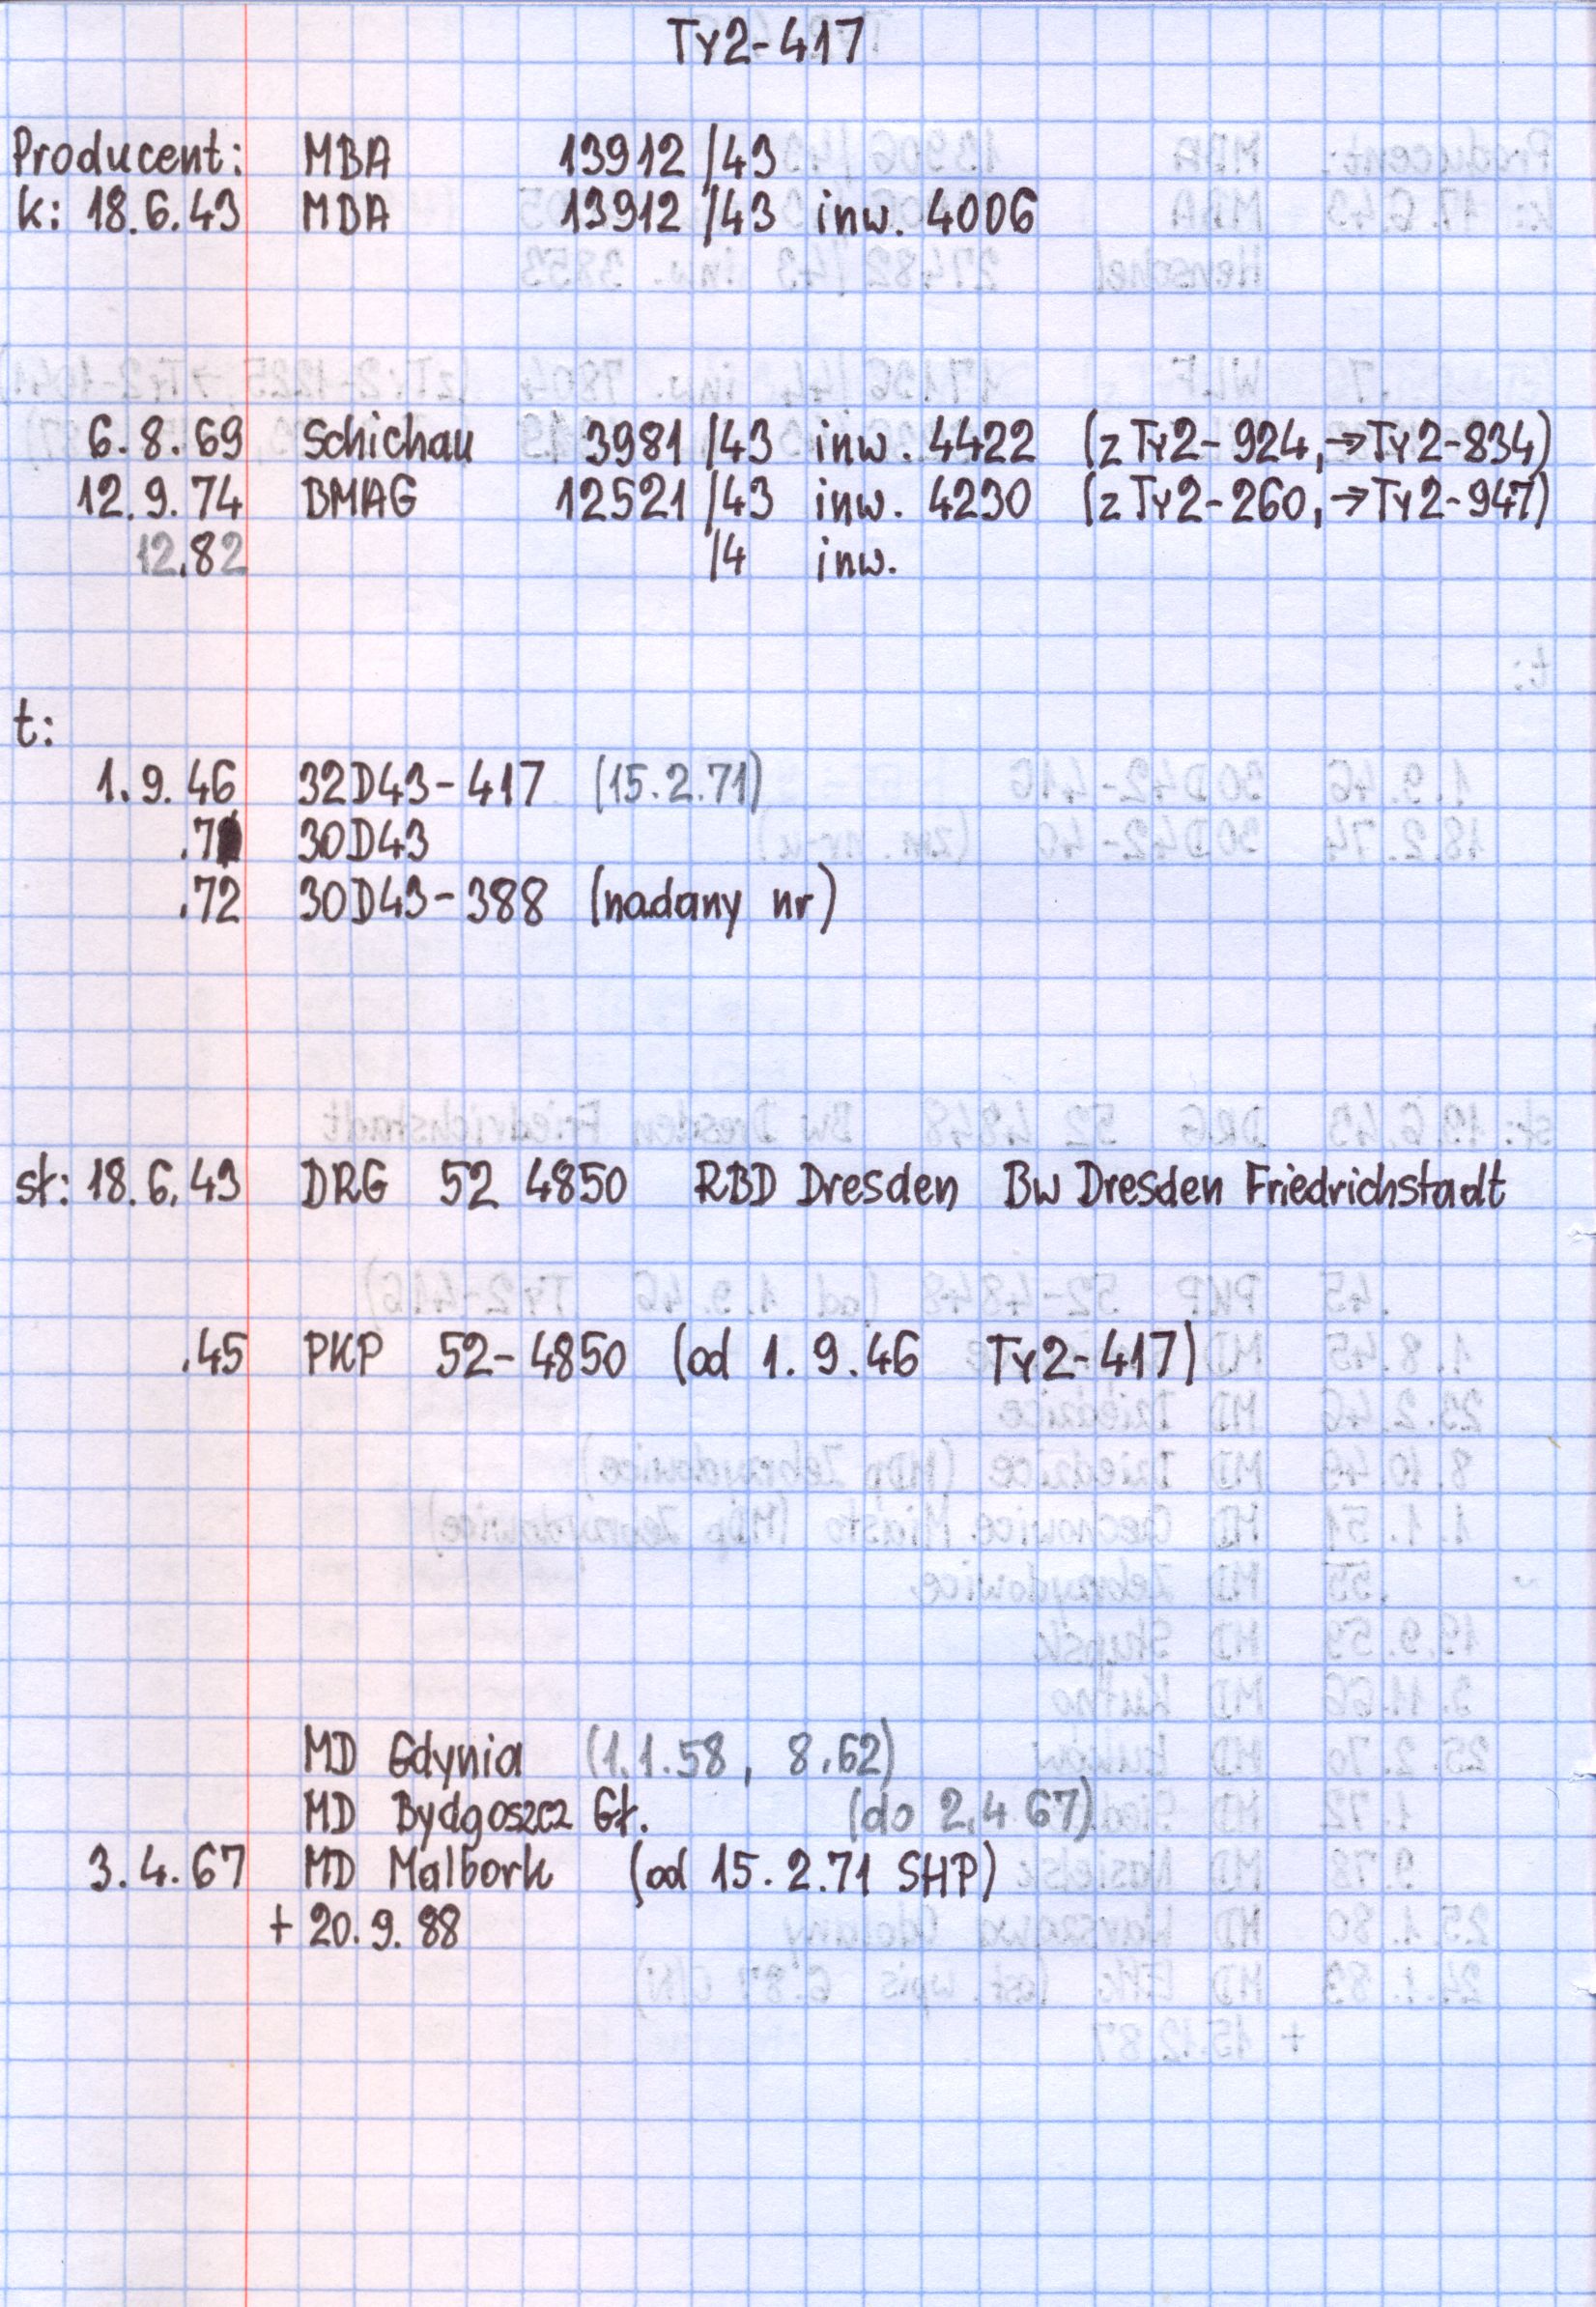 Ty2-417
Producent: MBA 13912 /43
k: 18.6.43 MBA 13912 /43 inw. 4006
6.8.69 Schichau 3981 /43 inw. 4422 (z Ty2-924, →Ty2-834)
12.9.74 BMAG 12521 /43 inw. 4230 (z Ty2-260, →Ty2-947)
12.82 /4 inw.
t:
1.9.46 32D43-417 (15.2.71)
.7 30D43
.72 30D43-388 (nadany nr)
st: 18.6.43 DRG 52 4850 RBD Dresden Bw Dresden Friedrichstadt
.45 PKP 52-4850 (od 1.9.46 Ty2-417)
MD Gdynia (1.1.58, 8.62)
MD Bydgoszcz Gł. (do 2.4 67)
3.4.67 MD Malbork (od 15.2.71 SHP)
+ 20.9.88